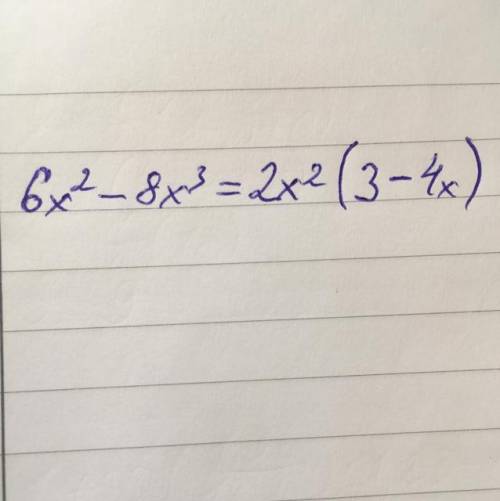 6x² - 8x³ = 2x² (3 - 4x)